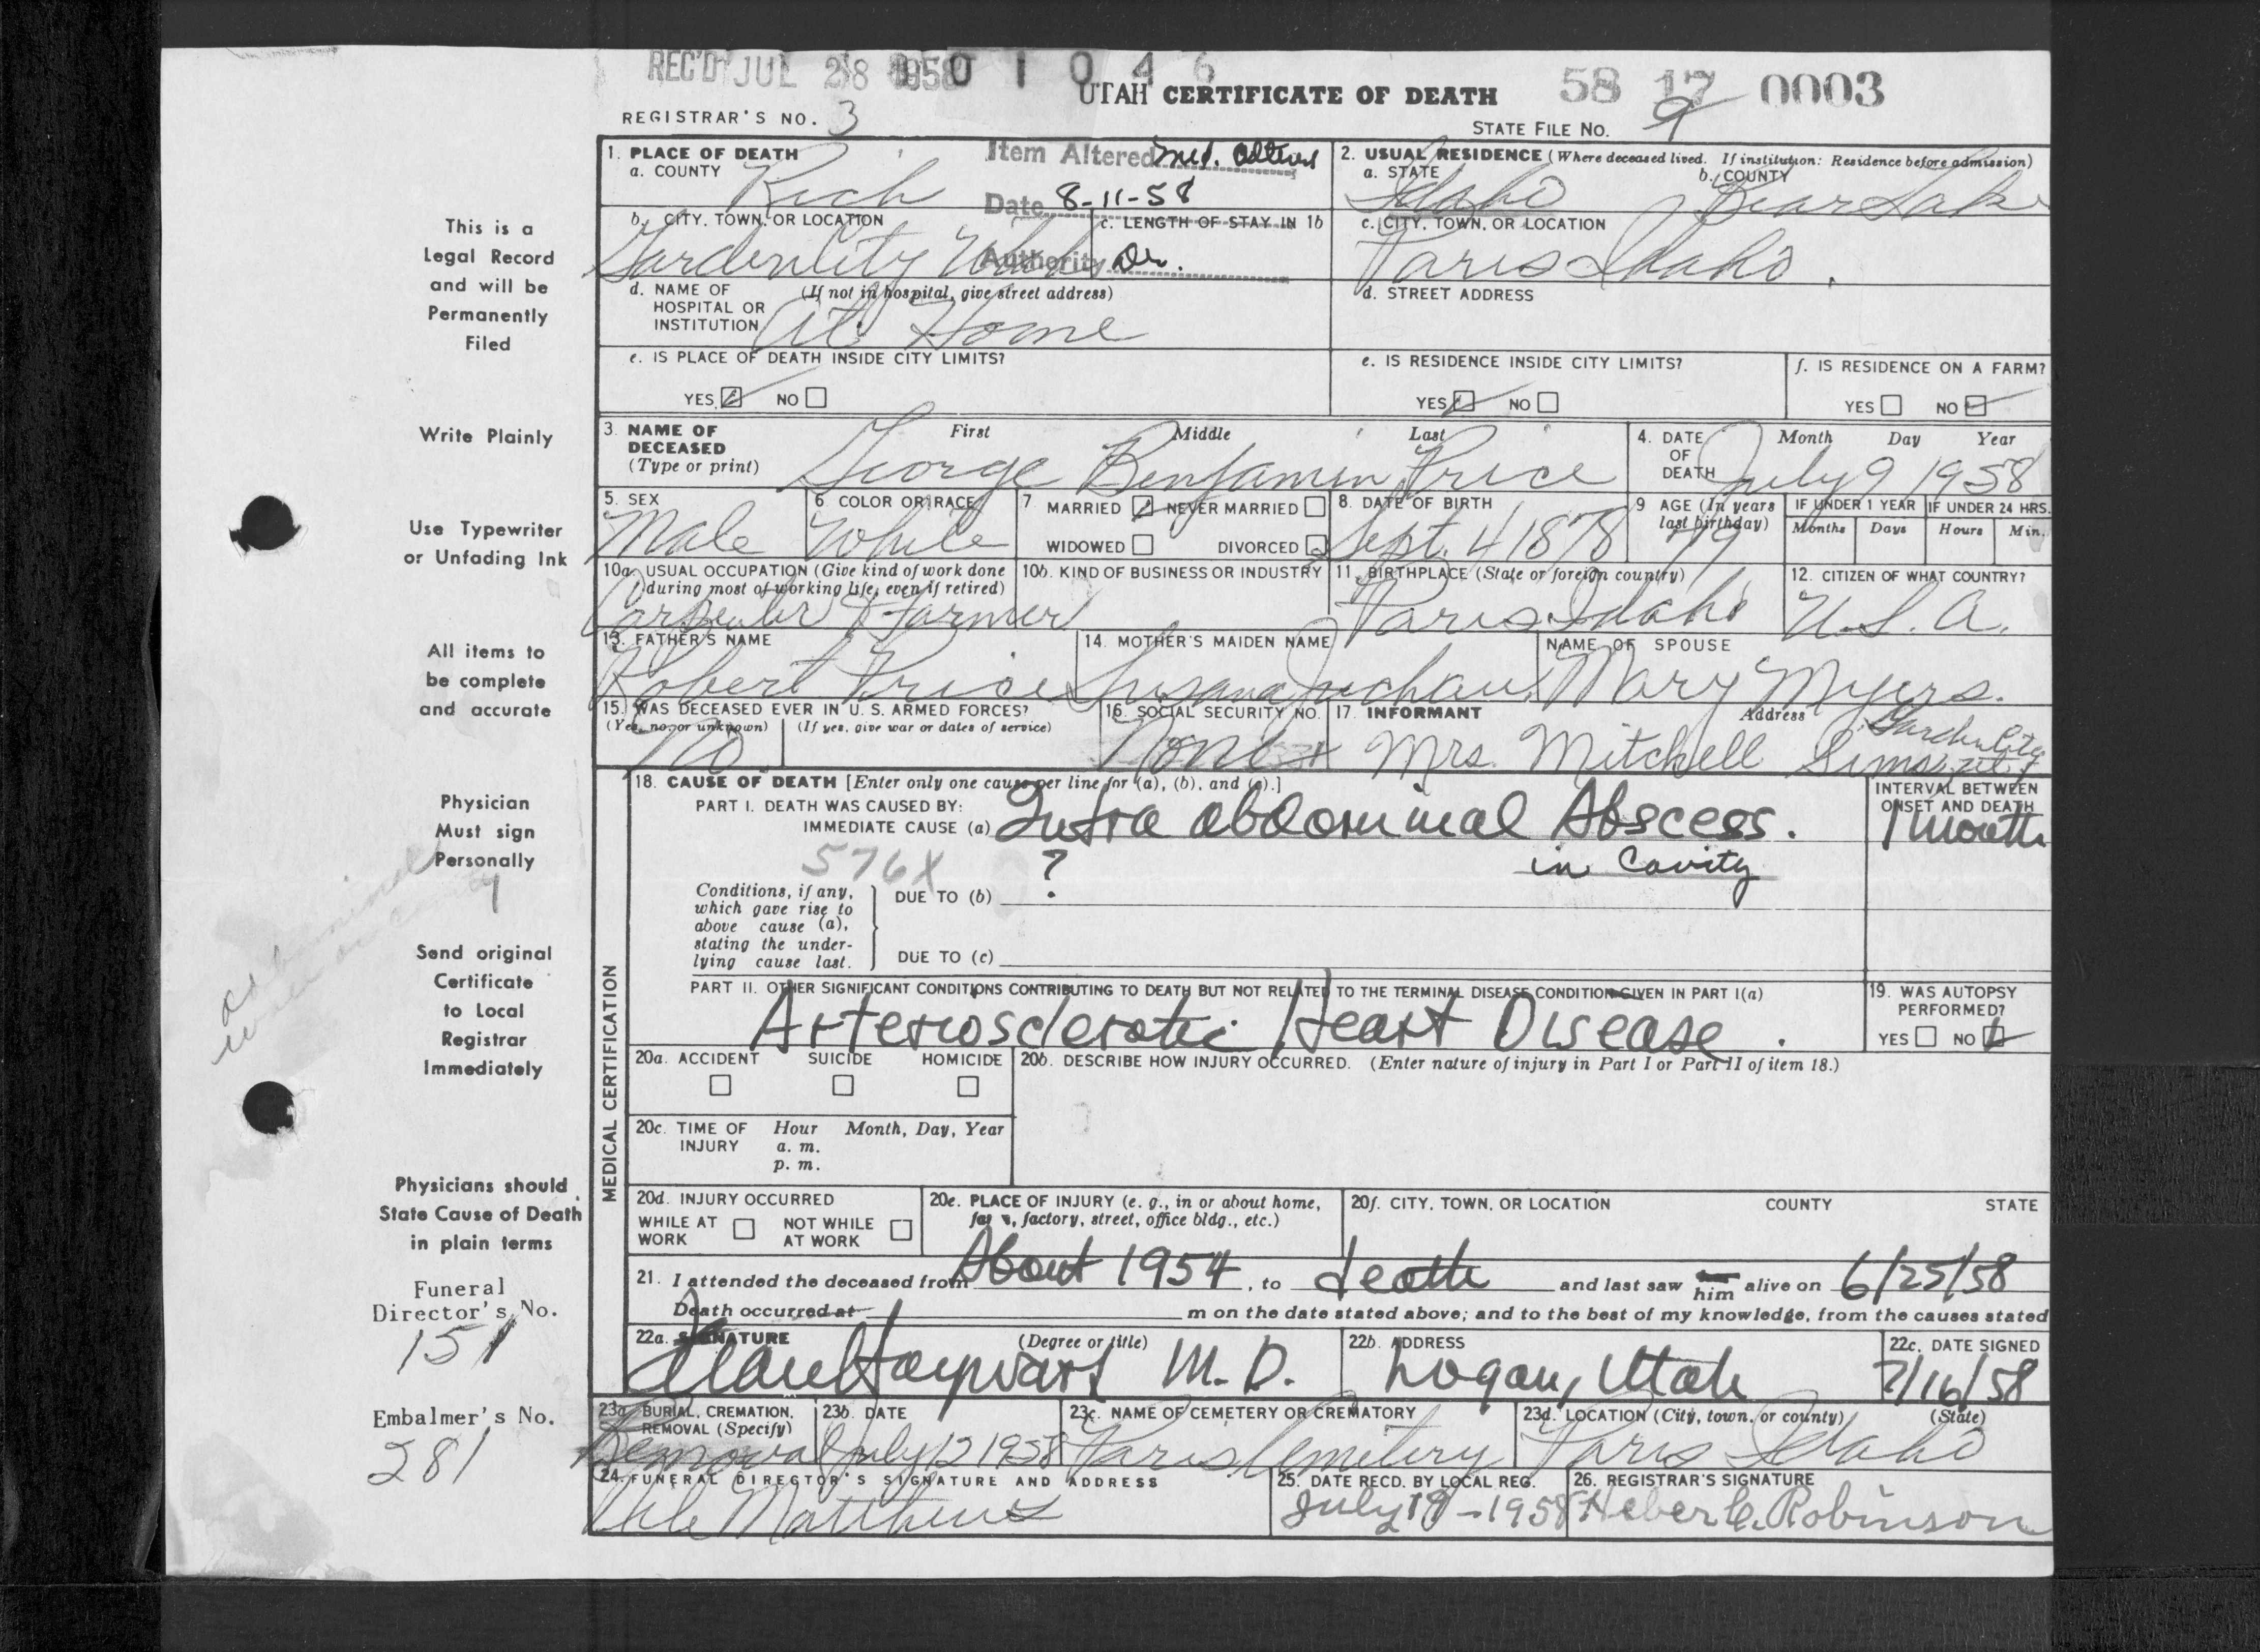 REC'D JUL 28 1958 0 1 0 4 6
UTAH CERTIFICATE OF DEATH
58 17 0003
REGISTRAR'S NO. 3
STATE FILE NO. 9
1. PLACE OF DEATH
a. COUNTY Rich
Item Altered Med.
Date 8-11-58
Authority Dr.
2. USUAL RESIDENCE (Where deceased lived. If institution: Residence before admission)
a. STATE Idaho b. COUNTY Bear Lake
b. CITY, TOWN, OR LOCATION Garden City Utah
c. LENGTH OF STAY IN 1b
c. CITY, TOWN, OR LOCATION Paris Idaho.
d. NAME OF HOSPITAL OR INSTITUTION (If not in hospital, give street address) At Home
d. STREET ADDRESS
e. IS PLACE OF DEATH INSIDE CITY LIMITS?
YES NO
e. IS RESIDENCE INSIDE CITY LIMITS?
YES NO
f. IS RESIDENCE ON A FARM?
YES NO
3. NAME OF DECEASED (Type or print)
First Middle Last
George Benjamin Price
4. DATE OF DEATH Month Day Year
July 9 1958
5. SEX Male
6. COLOR OR RACE White
7. MARRIED NEVER MARRIED
WIDOWED DIVORCED
8. DATE OF BIRTH Sept. 4 1878
9 AGE (In years last birthday) 79
IF UNDER 1 YEAR Months Days
IF UNDER 24 HRS. Hours Min.
10a. USUAL OCCUPATION (Give kind of work done during most of working life, even if retired)
Carpenter & Farmer
10b. KIND OF BUSINESS OR INDUSTRY
11. BIRTHPLACE (State or foreign country) Paris Idaho
12. CITIZEN OF WHAT COUNTRY? U.S.A.
13. FATHER'S NAME Robert Price
14. MOTHER'S MAIDEN NAME Susana
NAME OF SPOUSE Mary Myers.
15. WAS DECEASED EVER IN U. S. ARMED FORCES?
(Yes, no, or unknown) (If yes, give war or dates of service)
No.
16. SOCIAL SECURITY NO. None
17. INFORMANT Address
Mrs. Mitchell Sims Garden City
18. CAUSE OF DEATH [Enter only one cause per line for (a), (b), and (c).]
PART I. DEATH WAS CAUSED BY:
IMMEDIATE CAUSE (a) Intra abdominal Abscess.
in Cavity
INTERVAL BETWEEN ONSET AND DEATH
1 Month
576X
Conditions, if any, which gave rise to above cause (a), stating the underlying cause last.
DUE TO (b) ?
DUE TO (c)
PART II. OTHER SIGNIFICANT CONDITIONS CONTRIBUTING TO DEATH BUT NOT RELATED TO THE TERMINAL DISEASE CONDITION GIVEN IN PART I(a)
Arteriosclerotic Heart Disease.
19. WAS AUTOPSY PERFORMED?
YES NO
MEDICAL CERTIFICATION
20a. ACCIDENT SUICIDE HOMICIDE
20b. DESCRIBE HOW INJURY OCCURRED. (Enter nature of injury in Part I or Part II of item 18.)
20c. TIME OF INJURY Hour Month, Day, Year
a. m.
p. m.
20d. INJURY OCCURRED
WHILE AT WORK NOT WHILE AT WORK
20e. PLACE OF INJURY (e. g., in or about home, farm, factory, street, office bldg., etc.)
20f. CITY, TOWN, OR LOCATION COUNTY STATE
21. I attended the deceased from About 1954, to death and last saw him alive on 6/25/58
Death occurred at m on the date stated above; and to the best of my knowledge, from the causes stated
22a. SIGNATURE (Degree or title)
Hayward M.D.
22b. ADDRESS Logan, Utah
22c. DATE SIGNED 7/16/58
23a. BURIAL, CREMATION, REMOVAL (Specify) Removal
23b. DATE July 12 1958
23c. NAME OF CEMETERY OR CREMATORY Paris Cemetery
23d. LOCATION (City, town, or county) (State)
Paris Idaho
24. FUNERAL DIRECTOR'S SIGNATURE AND ADDRESS
Matthews
25. DATE RECD. BY LOCAL REG. July 19-1958
26. REGISTRAR'S SIGNATURE Heber C. Robinson
This is a
Legal Record
and will be
Permanently
Filed
Write Plainly
Use Typewriter
or Unfading Ink
All items to
be complete
and accurate
Physician
Must sign
Personally
Send original
Certificate
to Local
Registrar
Immediately
Physicians should
State Cause of Death
in plain terms
Funeral
Director's No.
151
Embalmer's No.
281